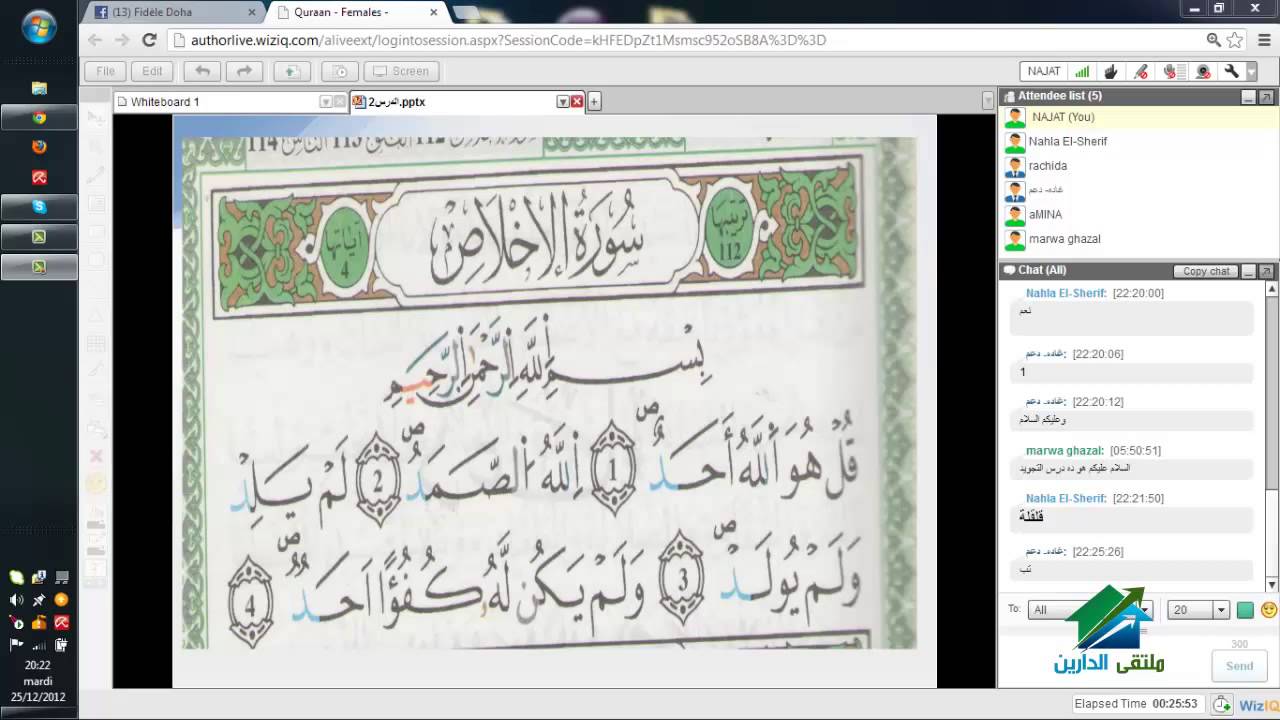 (13) Fidèle Doha
Quraan - Females -
authorlive.wiziq.com/aliveext/logintosession.aspx?SessionCode=kHFEDpZt1Msmsc952oSB8A%3D%3D
File Edit Screen
NAJAT
Whiteboard 1
الدرس2.pptx
Attendee list (5)
NAJAT (You)
Nahla El-Sherif
rachida
غاده- دعم
aMINA
marwa ghazal
114 113 112
سُورَةُ الإِخْلَاصِ
112
4
بِسْمِ ٱللَّهِ ٱلرَّحْمَٰنِ ٱلرَّحِيمِ
قُلْ هُوَ ٱللَّهُ أَحَدٌ ۖ 1 ٱللَّهُ ٱلصَّمَدُ ۖ 2 لَمْ يَلِدْ
وَلَمْ يُولَدْ ۖ 3 وَلَمْ يَكُن لَّهُ كُفُؤًا اَحَدٌ ۖ 4
Chat (All)
Copy chat
Nahla El-Sherif: [22:20:00]
نعم
غاده- دعم: [22:20:06]
1
غاده- دعم: [22:20:12]
وعليكم السلام
marwa ghazal: [05:50:51]
السلام عليكم هو ده درس التجويد
Nahla El-Sherif: [22:21:50]
قَلقَلة
غاده- دعم: [22:25:26]
تب
To: All 20
ملتقى الدارين
300
Send
20:22
mardi
25/12/2012
Elapsed Time 00:25:53
WizIQ